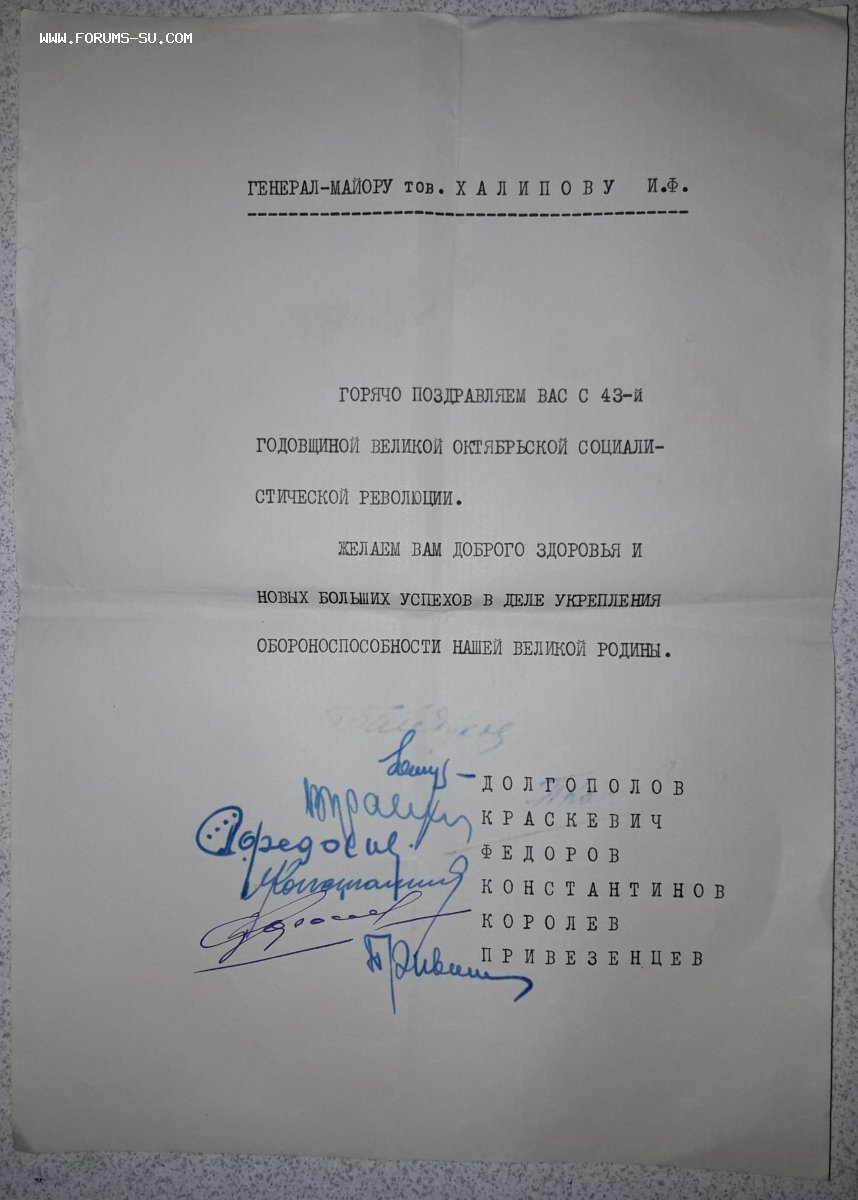 WWW.FORUMS-SU.COM
ГЕНЕРАЛ-МАЙОРУ тов. Х А Л И П О В У И.Ф.
ГОРЯЧО ПОЗДРАВЛЯЕМ ВАС С 43-й
ГОДОВЩИНОЙ ВЕЛИКОЙ ОКТЯБРЬСКОЙ СОЦИАЛИ-
СТИЧЕСКОЙ РЕВОЛЮЦИИ.
ЖЕЛАЕМ ВАМ ДОБРОГО ЗДОРОВЬЯ И
НОВЫХ БОЛЬШИХ УСПЕХОВ В ДЕЛЕ УКРЕПЛЕНИЯ
ОБОРОНОСПОСОБНОСТИ НАШЕЙ ВЕЛИКОЙ РОДИНЫ.
Д О Л Г О П О Л О В
К Р А С К Е В И Ч
Ф Е Д О Р О В
К О Н С Т А Н Т И Н О В
К О Р О Л Е В
П Р И В Е З Е Н Ц Е В